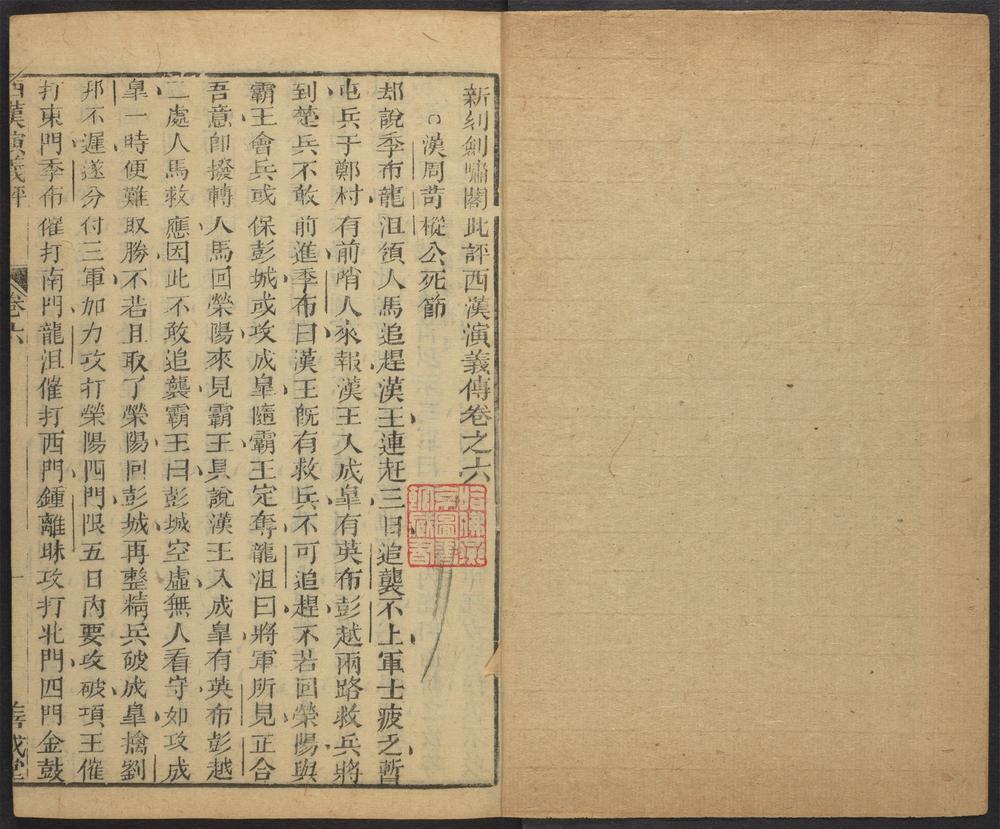 新刻劍嘯閣批評西漢演義傳卷之六
○漢周苛樅公死節
却說季布龍沮領人馬追趕漢王連赶三日追襲不上軍士疲乏暫
屯兵于鄭村有前哨人來報漢王入成臯有英布彭越兩路救兵將
到楚兵不敢前進季布曰漢王既有救兵不可追趕不若回榮陽與
霸王會兵或保彭城或攻成臯隨霸王定奪龍沮曰將軍所見正合
吾意卽撥轉人馬回榮陽來見霸王具說漢王入成臯有英布彭越
二處人馬救應因此不敢追襲霸王曰彭城空虛無人看守如攻成
臯一時便難取勝不若且取了榮陽回彭城再整精兵破成臯擒劉
邦不遲遂分付三軍加力攻打榮陽四門限五日內要攻破項王催
打東門季布催打南門龍沮催打西門鍾離昧攻打北門四門金鼓
西漢演義評
卷六
一
善成堂